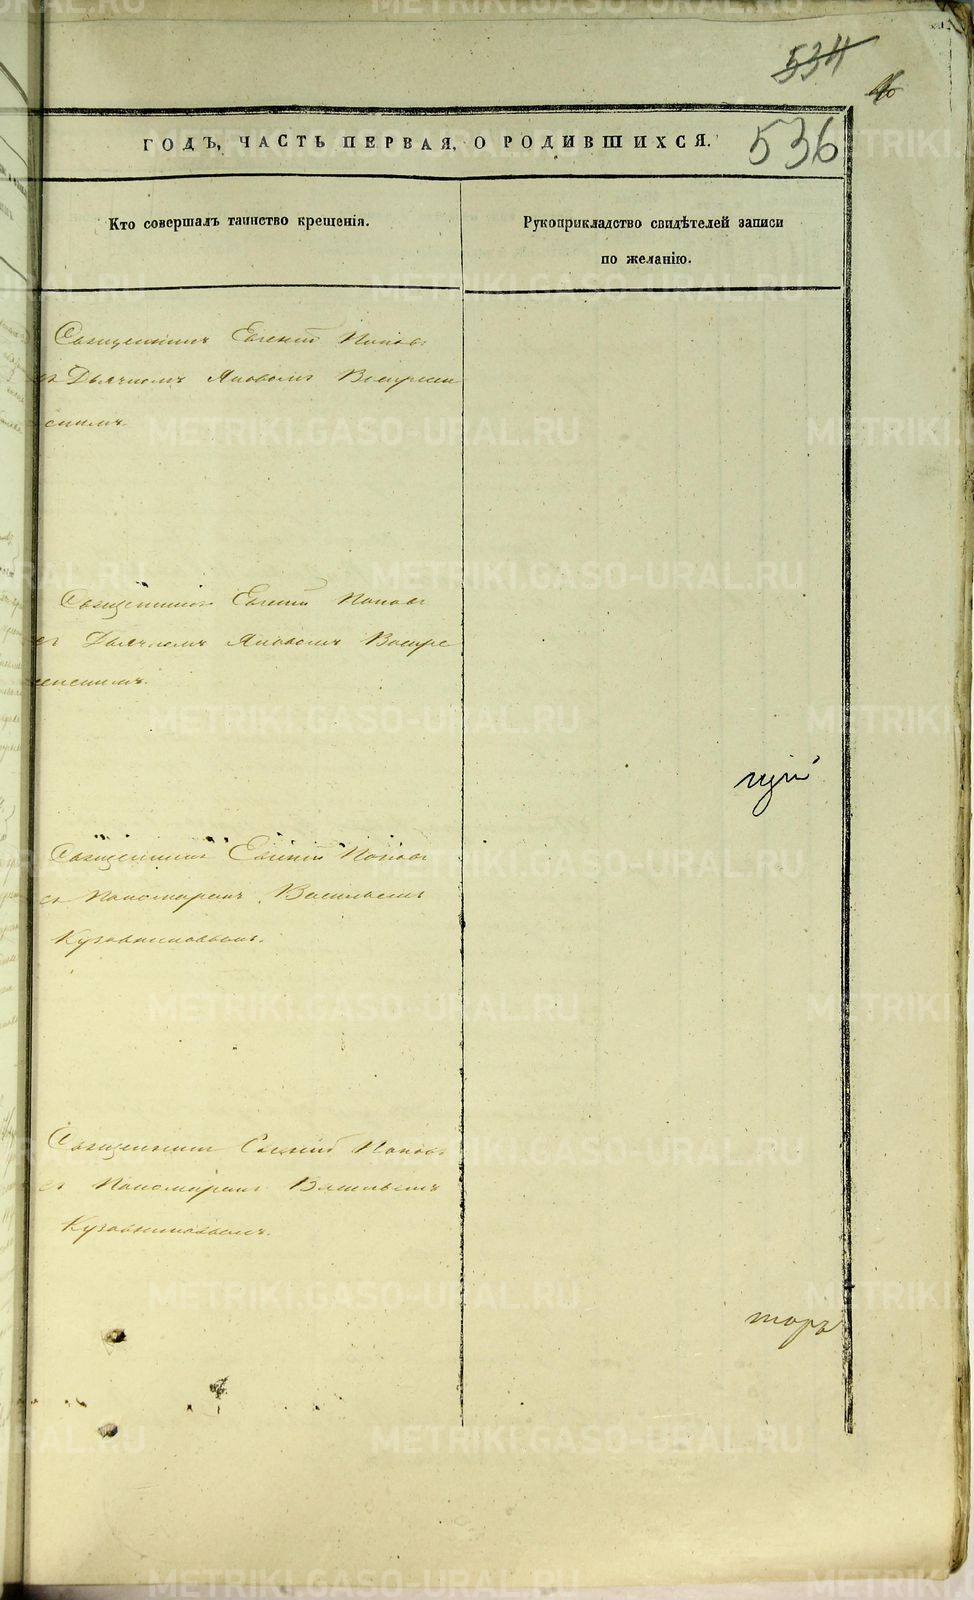 534
536
ГОДЪ, ЧАСТЬ ПЕРВАЯ, О РОДИВШИХСЯ.
Кто совершалъ таинство крещенія.
Рукоприкладство свидѣтелей записи
по желанію.
Священникъ Евгеній Поповъ
съ Дьячкомъ Яковомъ Воскресен
скимъ.
Священникъ Евгеній Поповъ
съ Дьячкомъ Яковомъ Воскре
сенскимъ.
Священникъ Евгеній Поповъ
съ Пономаремъ Васильемъ
Кузовниковымъ.
Священникъ Евгеній Поповъ
съ Пономаремъ Васильемъ
Кузовниковымъ.
торъ
METRIKI.GASO-URAL.RU